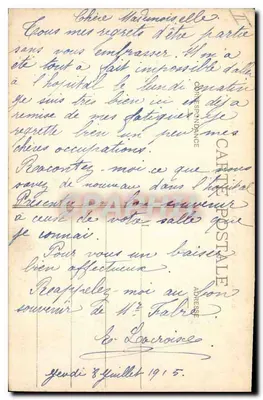 Chère Mademoiselle
Tous mes regrets d'être partie
sans vous embrasser. Il m'a
été tout à fait impossible d'aller
à l'hôpital le lundi matin
je suis très bien ici et déjà
remise de mes fatigues. Je
regrette bien un peu mes
chères occupations.
Racontez-moi ce que vous
avez de nouveau dans l'hôpital
Présentez mon souvenir
à ceux de votre salle que
je connais.
Pour vous un baiser
bien affectueux
Rappelez-moi au bon
souvenir de Mr Fabre
E. Lacroix
Jeudi 8 Juillet 1915.
CARTE POSTALE
CORRESPONDANCE
ADRESSE